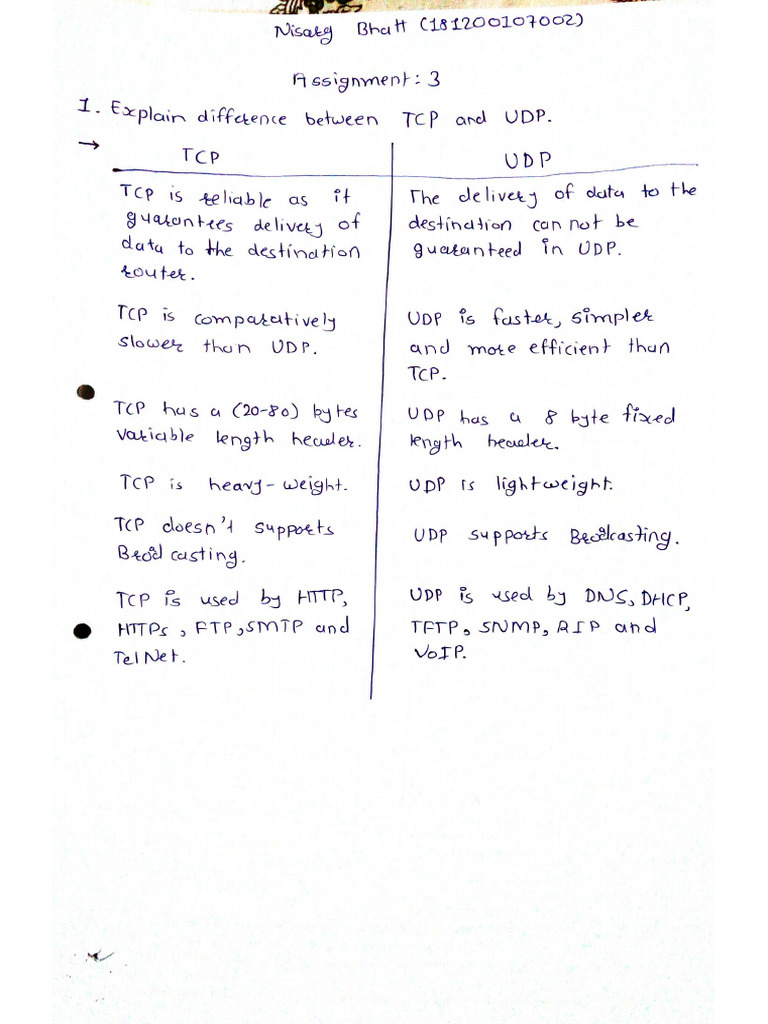 Nisarg Bhatt (181200107002)
Assignment: 3
1. Explain difference between TCP and UDP.
→ TCP
TCP is reliable as it
guarantees delivery of
data to the destination
router.
TCP is comparatively
slower than UDP.
TCP has a (20-80) bytes
variable length header.
TCP is heavy-weight.
TCP doesn't supports
Broadcasting.
TCP is used by HTTP,
HTTPs, FTP, SMTP and
TelNet.
UDP
The delivery of data to the
destination can not be
guaranteed in UDP.
UDP is faster, simpler
and more efficient than
TCP.
UDP has a 8 byte fixed
length header.
UDP is lightweight.
UDP supports Broadcasting.
UDP is used by DNS, DHCP,
TFTP, SNMP, RIP and
VoIP.